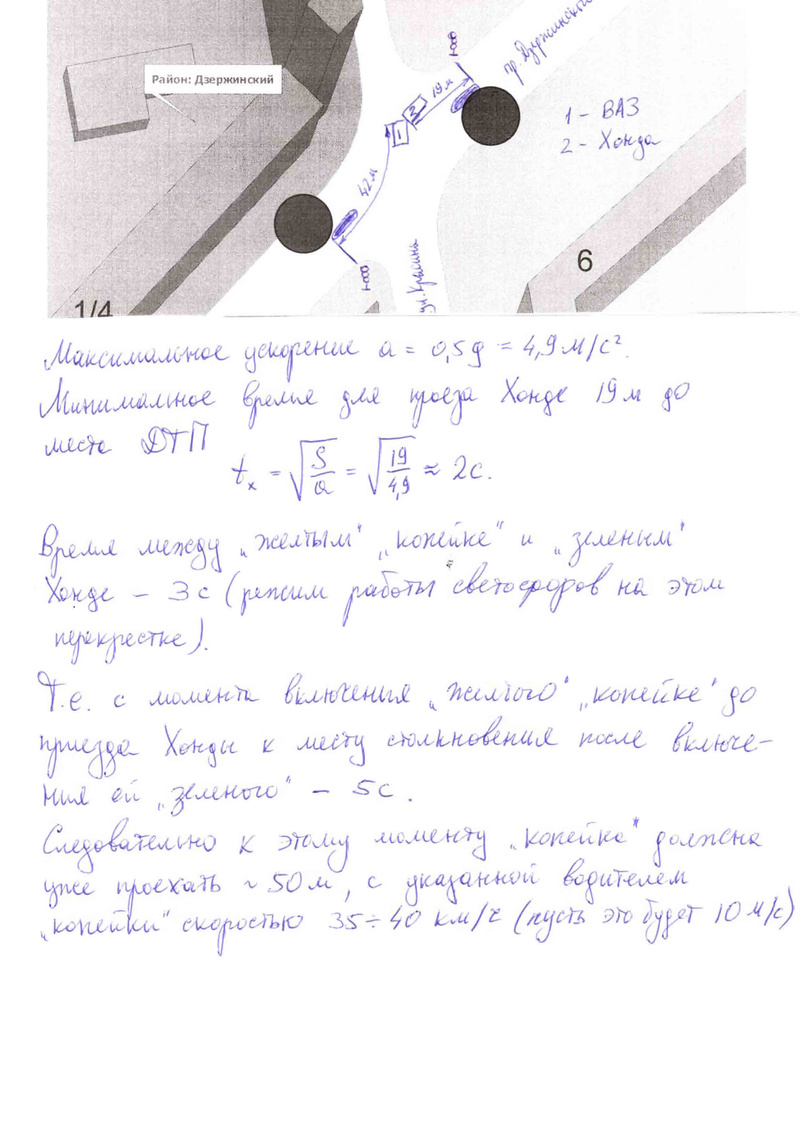 Район: Дзержинский
пр. Дзержинского
19 м
2
1
1 - ВАЗ
2 - Хонда
42 м
ул. Красина
6
1/4
Максимальное ускорение a = 0,5g = 4,9 м/с².
Минимальное время для проеза Хонде 19 м до
места ДТП
tₓ = √(S/a) = √(19/4,9) ≈ 2с.
Время между „желтым" „копейке" и „зеленым"
Хонде – 3с (режим работы светофоров на этом
перекрестке).
Т.е. с момента включения „желтого" „копейке" до
приезда Хонды к месту столкновения после включе-
ния ей „зеленого" – 5с.
Следовательно к этому моменту „копейка" должна
уже проехать ~ 50 м, с указанной водителем
„копейки" скоростью 35÷40 км/ч (пусть это будет 10 м/с)